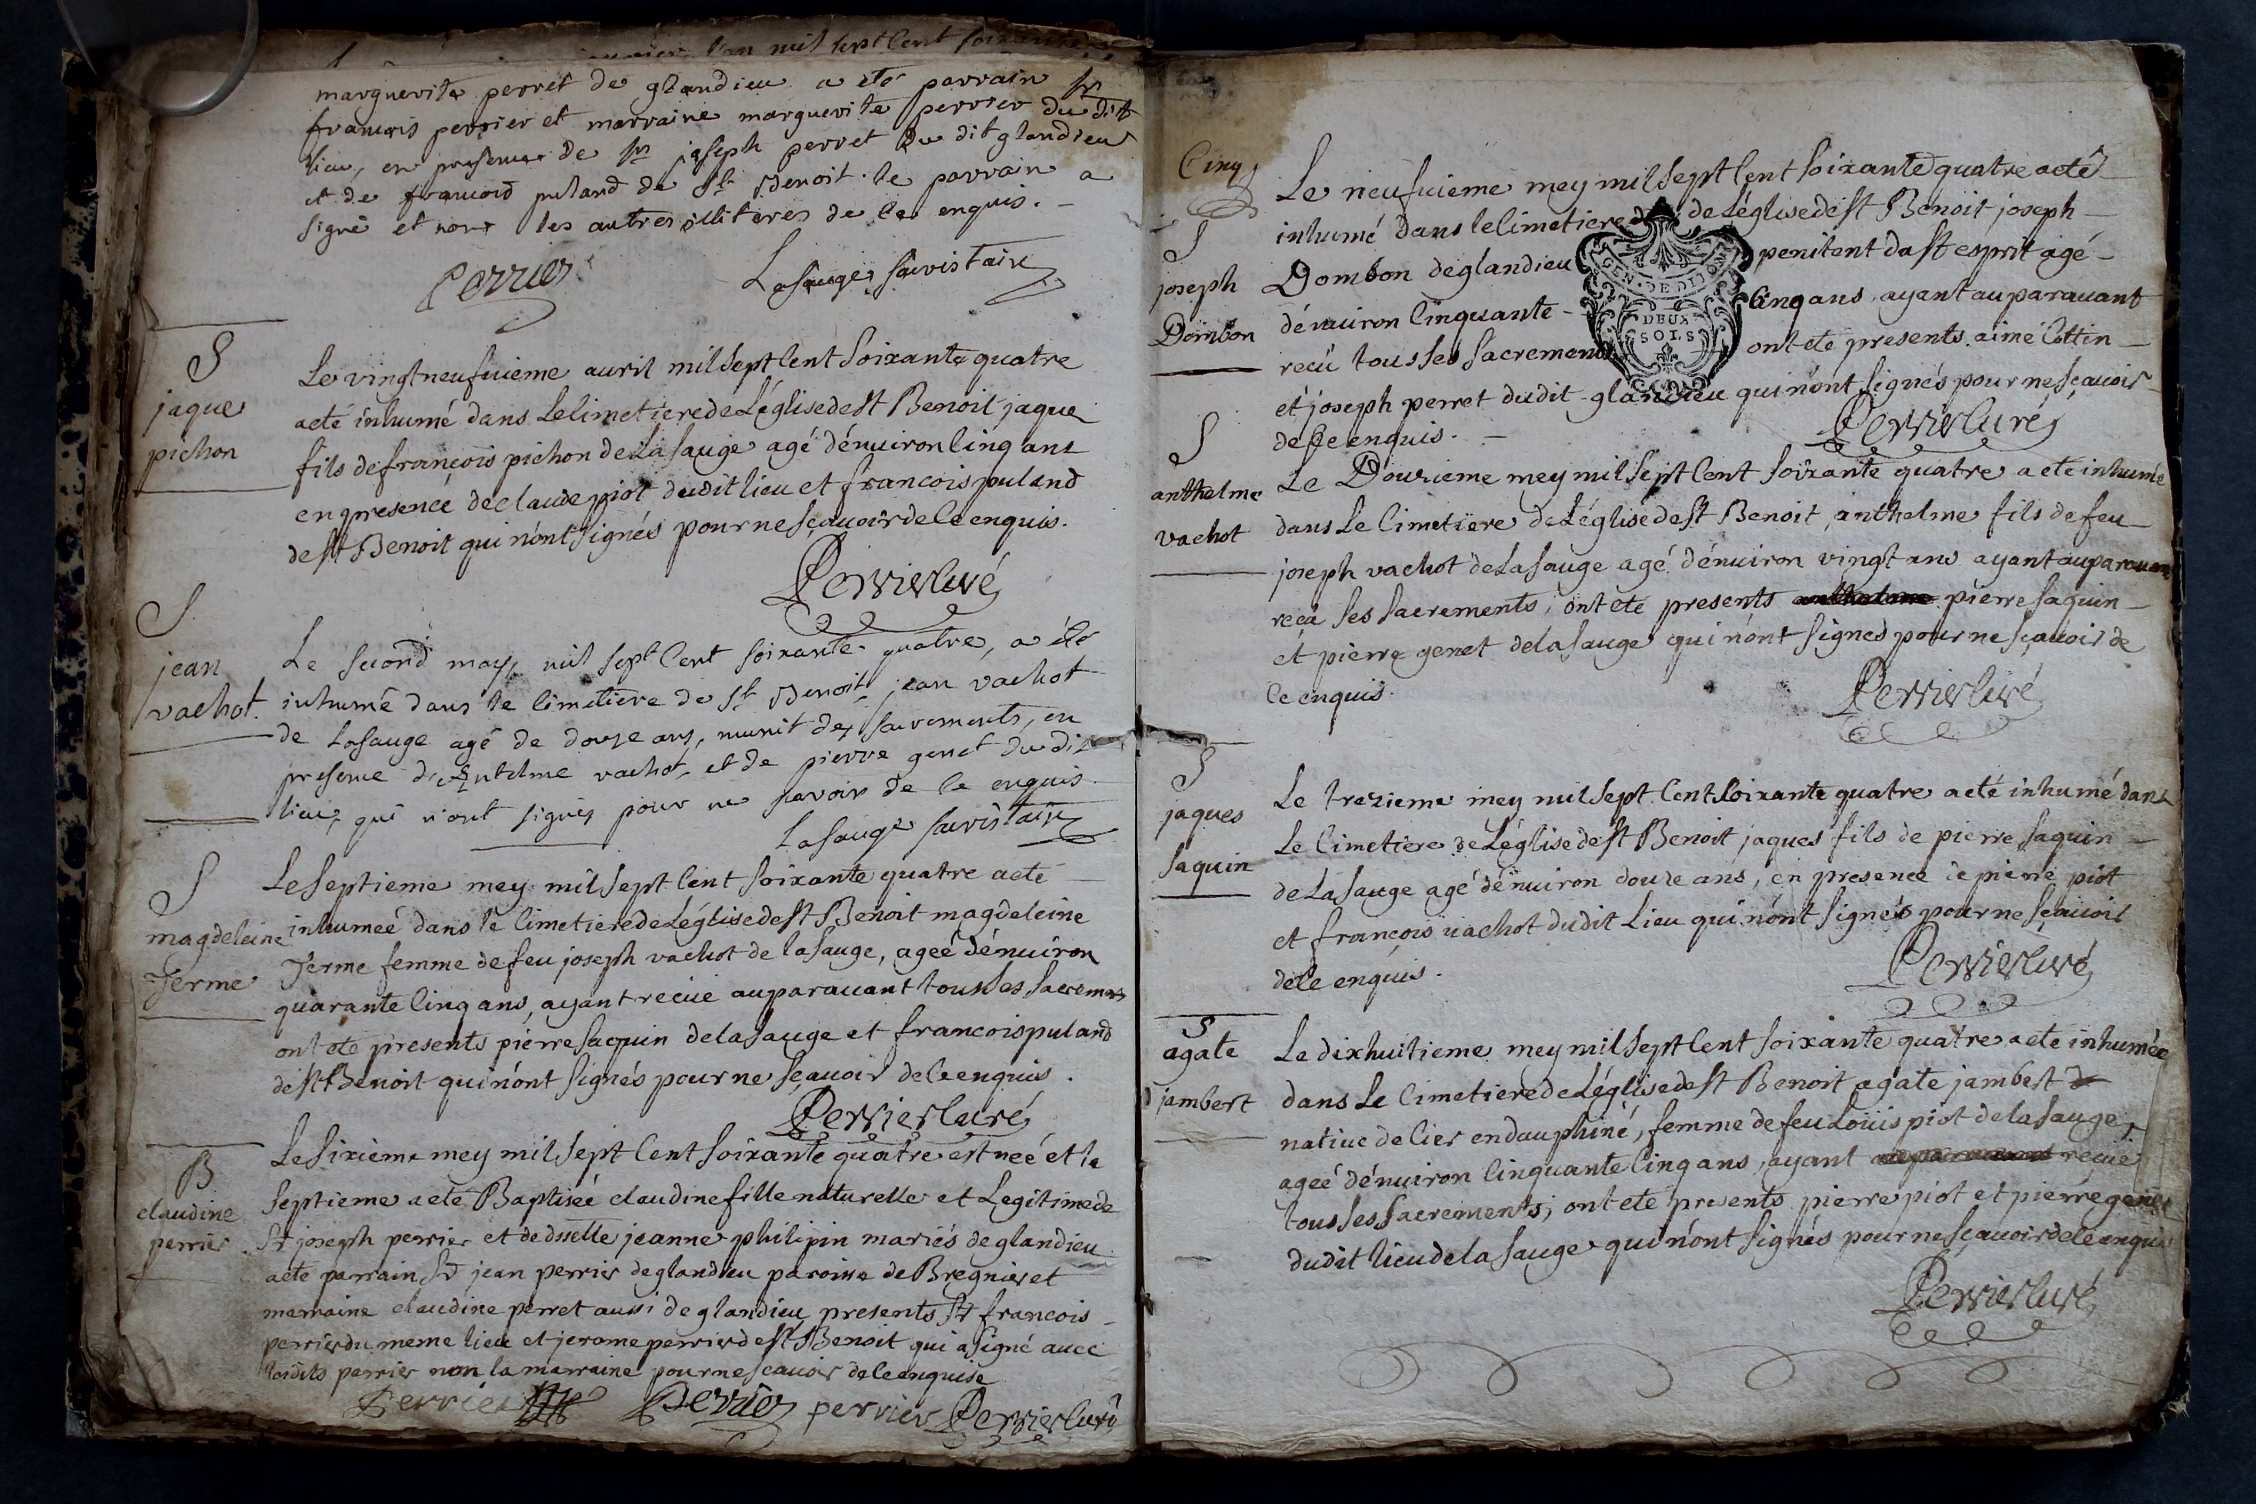 mil sept Cent soixante
marguerite perret de glandieu a eté parrain sr
francois perrier et marraine marguerite perrier du dit
lieu, en presence de sr joseph perret du dit glandieu
et de francois puland de st Benoit. le parrain a
signé et non les autres illiteres de ce enquis. -
Perrier Lasauge, sacristain
S
jaque
pichon
Le vingt neufuieme auril mil sept Cent Soixante quatre
a eté inhumé dans Le Cimetiere de L'église de st Benoit jaque
fils de françois pichon de La sauge agé d'énuiron Cinq ans
en presence de claude piot du dit lieu et francois puland
de st Benoit qui n'ont signés pour ne sçauoir de Ce enquis.
Perrier Curé
S
jean
vachot.
Le second may, mil sept Cent soixante quatre, a été
inhumé dans le Cimetiere de st Benoit, jean vachot
de Lasauge agé de douze ans, munit des sacrements, en
presence d'Antelme vachot, et de pierre genet du dit
lieu, qui n'ont signés pour ne savoir de Ce enquis
Lasauge sacristain
S
magdeleine
Terme
Le septieme mey mil sept Cent soixante quatre a eté
inhumeé dans le Cimetiere de L'église de st Benoit magdeleine
Terme femme de feu joseph vachot de la sauge, ageé d'énuiron
quarante Cinq ans, ayant recüe auparauant tous les sacremens
ont eté presents pierre saquin de la sauge et francois puland
de st Benoit qui n'ont signés pour ne sçauoir de Ce enquis.
Perrier Curé
B
claudine
perrier
Le sixieme mey mil sept Cent soixante quatre est neé et le
septieme a eté Baptiseé claudine fille naturelle et Legitime de
sr joseph perrier et de dsselle jeanne philipin mariés de glandieu
a eté parrain sr jean perrier de glandieu paroisse de Bregnier et
marraine claudine perret aussi de glandieu presents sr francois
perrier du meme lieu et jerome perrier de st Benoit qui a signé auec
lesdits perrier non la marraine pour ne scauoir de Ce enquise
Perrier Perrier perrier Perrier Curé
Cinq
S
joseph
Dombon
Le neufuieme mey mil sept Cent soixante quatre a eté
inhumé dans le Cimetiere de L'église de st Benoit joseph
Dombon de glandieu penitent du st esprit agé
d'énuiron Cinquante Cinq ans ayant auparauant
recü tous ses sacrements ont eté presents aimé Cottin
et joseph perret du dit glandieu qui n'ont signés pour ne sçauoir
de Ce enquis.
GEN. DE DIJON
DEUX
SOLS
Perrier Curé
S
anthelme
vachot
Le Douzieme mey mil sept Cent soixante quatre a eté inhumé
dans Le Cimetiere de L'église de st Benoit anthelme fils de feu
joseph vachot de La sauge agé d'énuiron vingt ans ayant auparauant
recü ses sacrements, ont eté presents pierre saquin
et pierre genet de la sauge qui n'ont signes pour ne sçauoir de
Ce enquis.
Perrier Curé
S
jaques
saquin
Le trezieme mey mil sept Cent soixante quatre a eté inhumé dans
Le Cimetiere de L'église de st Benoit jaques fils de pierre saquin
de La sauge agé d'énuiron douze ans, en presence de pierre piot
et françois vachot du dit Lieu qui n'ont signés pour ne sçauoir
de Ce enquis.
Perrier Curé
S
agate
jambert
Le dixhuitieme mey mil sept Cent soixante quatre a eté inhumée
dans Le Cimetiere de L'église de st Benoit agate jambert
natiue de Cier en dauphiné, femme de feu Loüis piot de la sauge,
ageé d'énuiron Cinquante Cinq ans, ayant recüe
tous ses sacrements, ont eté presents pierre piot et pierre genet
du dit lieu de la sauge qui n'ont signés pour ne sçauoir de Ce enquis
Perrier Curé